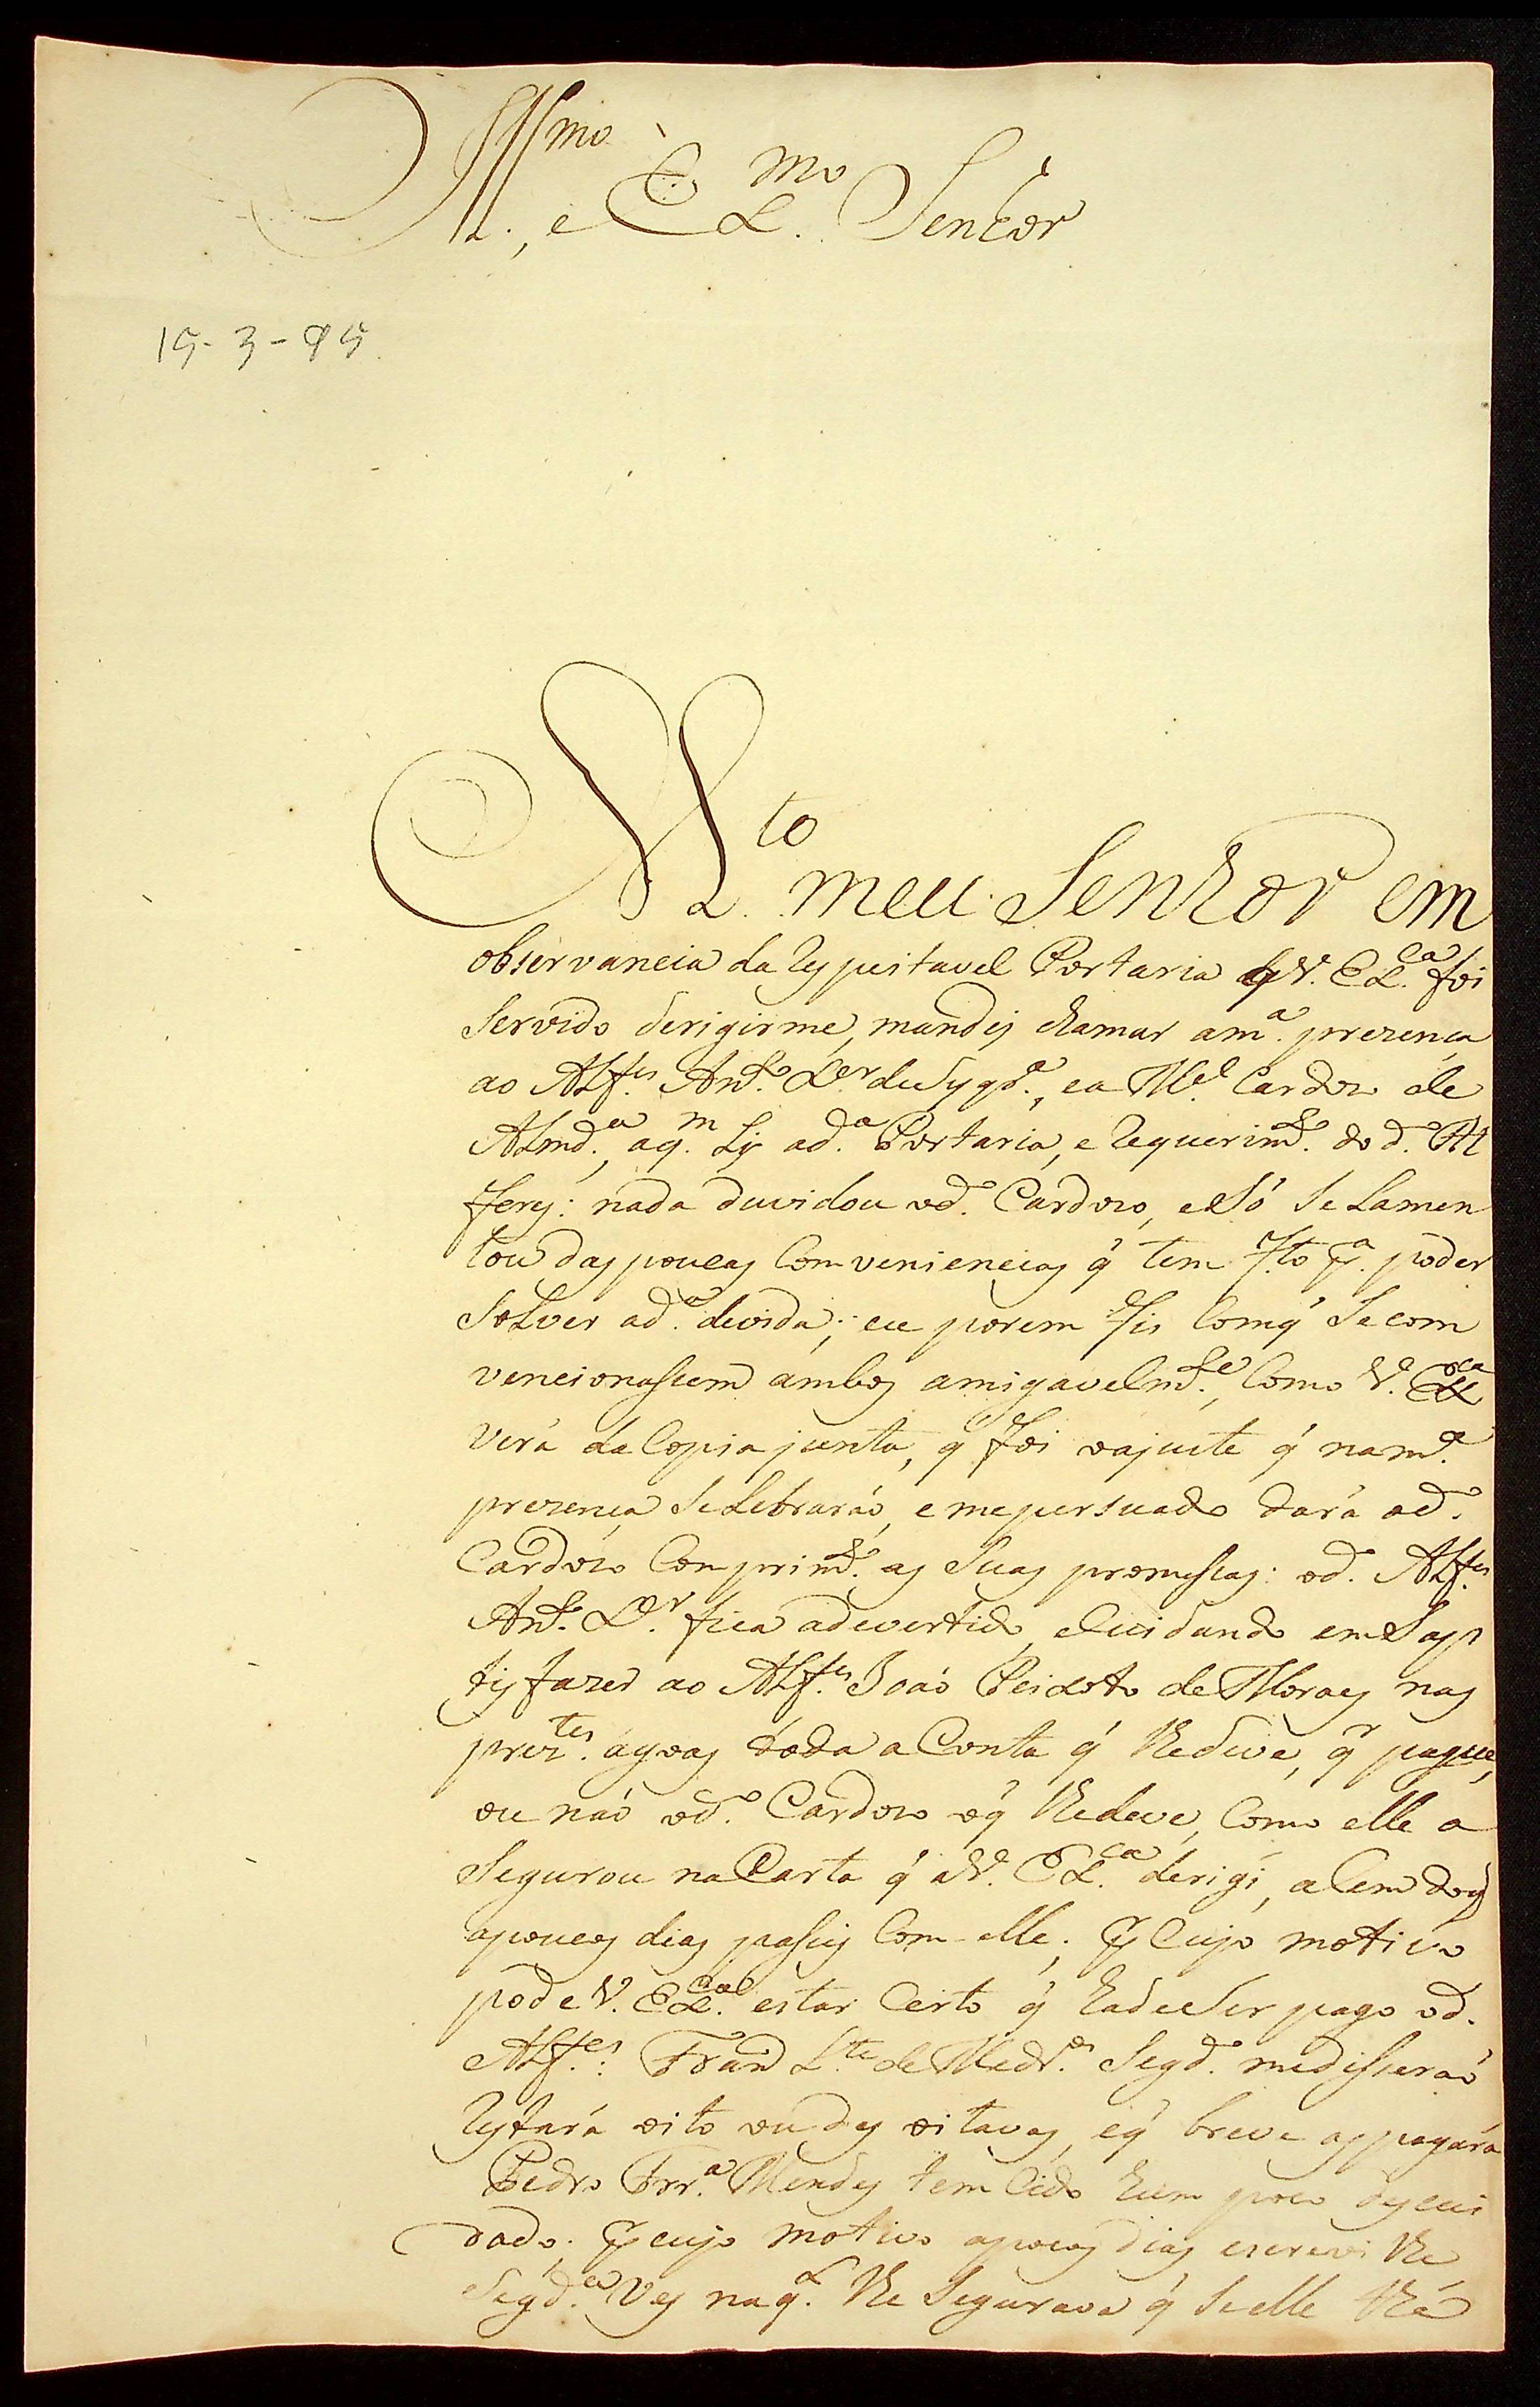 Illmo., e Exmo. Senhor
15-3-95.
Mto. meu Senhor em
observancia da respeitavel Portaria q̃ V. Exca. foi
servido derigirme, mandej chamar a ma. prezença
ao Alfes. Anto. Xer. , e a Mel. Cardozo de
Almda., a qm. Ly a da. Portaria, e requerimto. do do. Al
feres: nada duvidou o do. Cardozo, e só se Lamen
tou das poucas Comveniencias q̃ tem fto. pa. poder
solver a da. devida; eu porem fis Com q̃ se com
vencionassem ambos amigavelmte., Como V. Exca.
verá da Copia junta, q̃ foi o ajuste q̃ na ma.
prezença seLebraráo, e me persuado dará o do.
Cardozo Comprimto. as suas promessas: o do. Alfes.
Anto. Xer. fica adevertido, e Cuidando em sas
tisfazer ao Alfes. Joáo Peixoto de Moraes nas
prezes. agoas toda a Conta q̃ lhe deve, qr. pague,
ou náo o do. Cardozo o q̃ lhe deve, Como elle a
segurou na Carta q̃ a V. Exca. derigi, alem do q̃
a poucos dias passej Com elle; p̃ Cujo motivo
pode V. Exca. estar Certo q̃ hade ser pago o do.
Alfes.: Franco Lte. de Medros. segdo. me disseráo
restará oito ou des oitavas, e q̃ breve as pagará
Pedro Frra. Mendes tem Cido hum poco descui
dado; p̃ cujo motivo a poucos dias escrevi lhe
segda. Ves na ql. lhe segurava q̃ se elle lhá